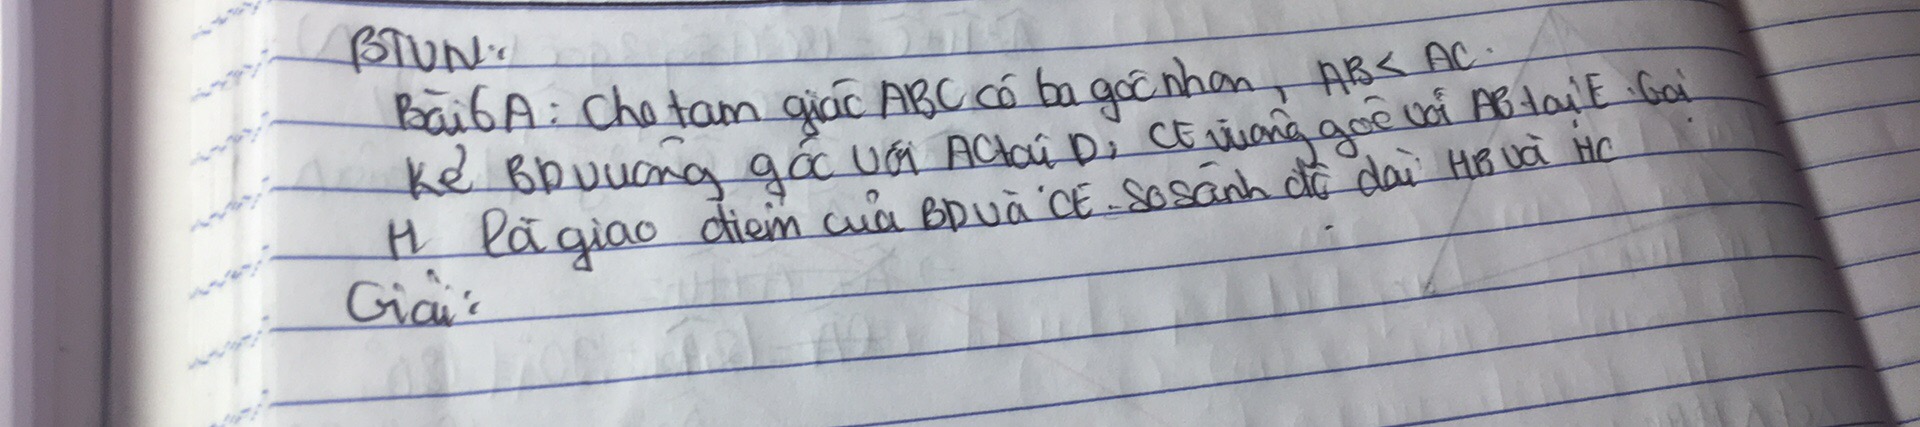 BTVN:
Bài 6A: Cho tam giác ABC có ba góc nhọn, AB < AC.
Kẻ BD vuông góc với AC tại D, CE vuông góc với AB tại E. Gọi
H là giao điểm của BD và CE. So sánh độ dài HB và HC
Giải: